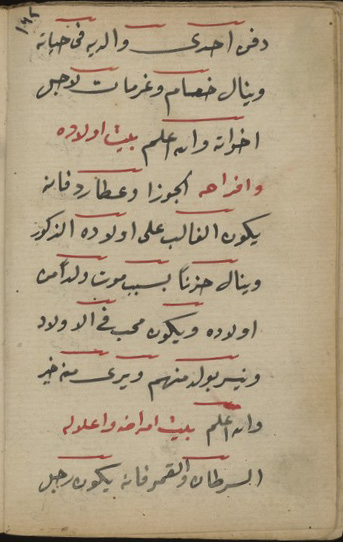 ١٩٥
دفن احدى والديه فى حياته
وينال خصام وغرمات لاجل
اخواته والله اعلم بيت اولاده
وافراحه الجوزا وعطارد فانه
يكون الغالب على اولاده الذكور
وينال حزنا بسبب موت ولدا من
اولاده ويكون محب فى الاولاد
ويسر بولد منهم ويرى منه خير
والله اعلم بيت امراضه واعلاله
السرطان والقمر فانه يكون رجل